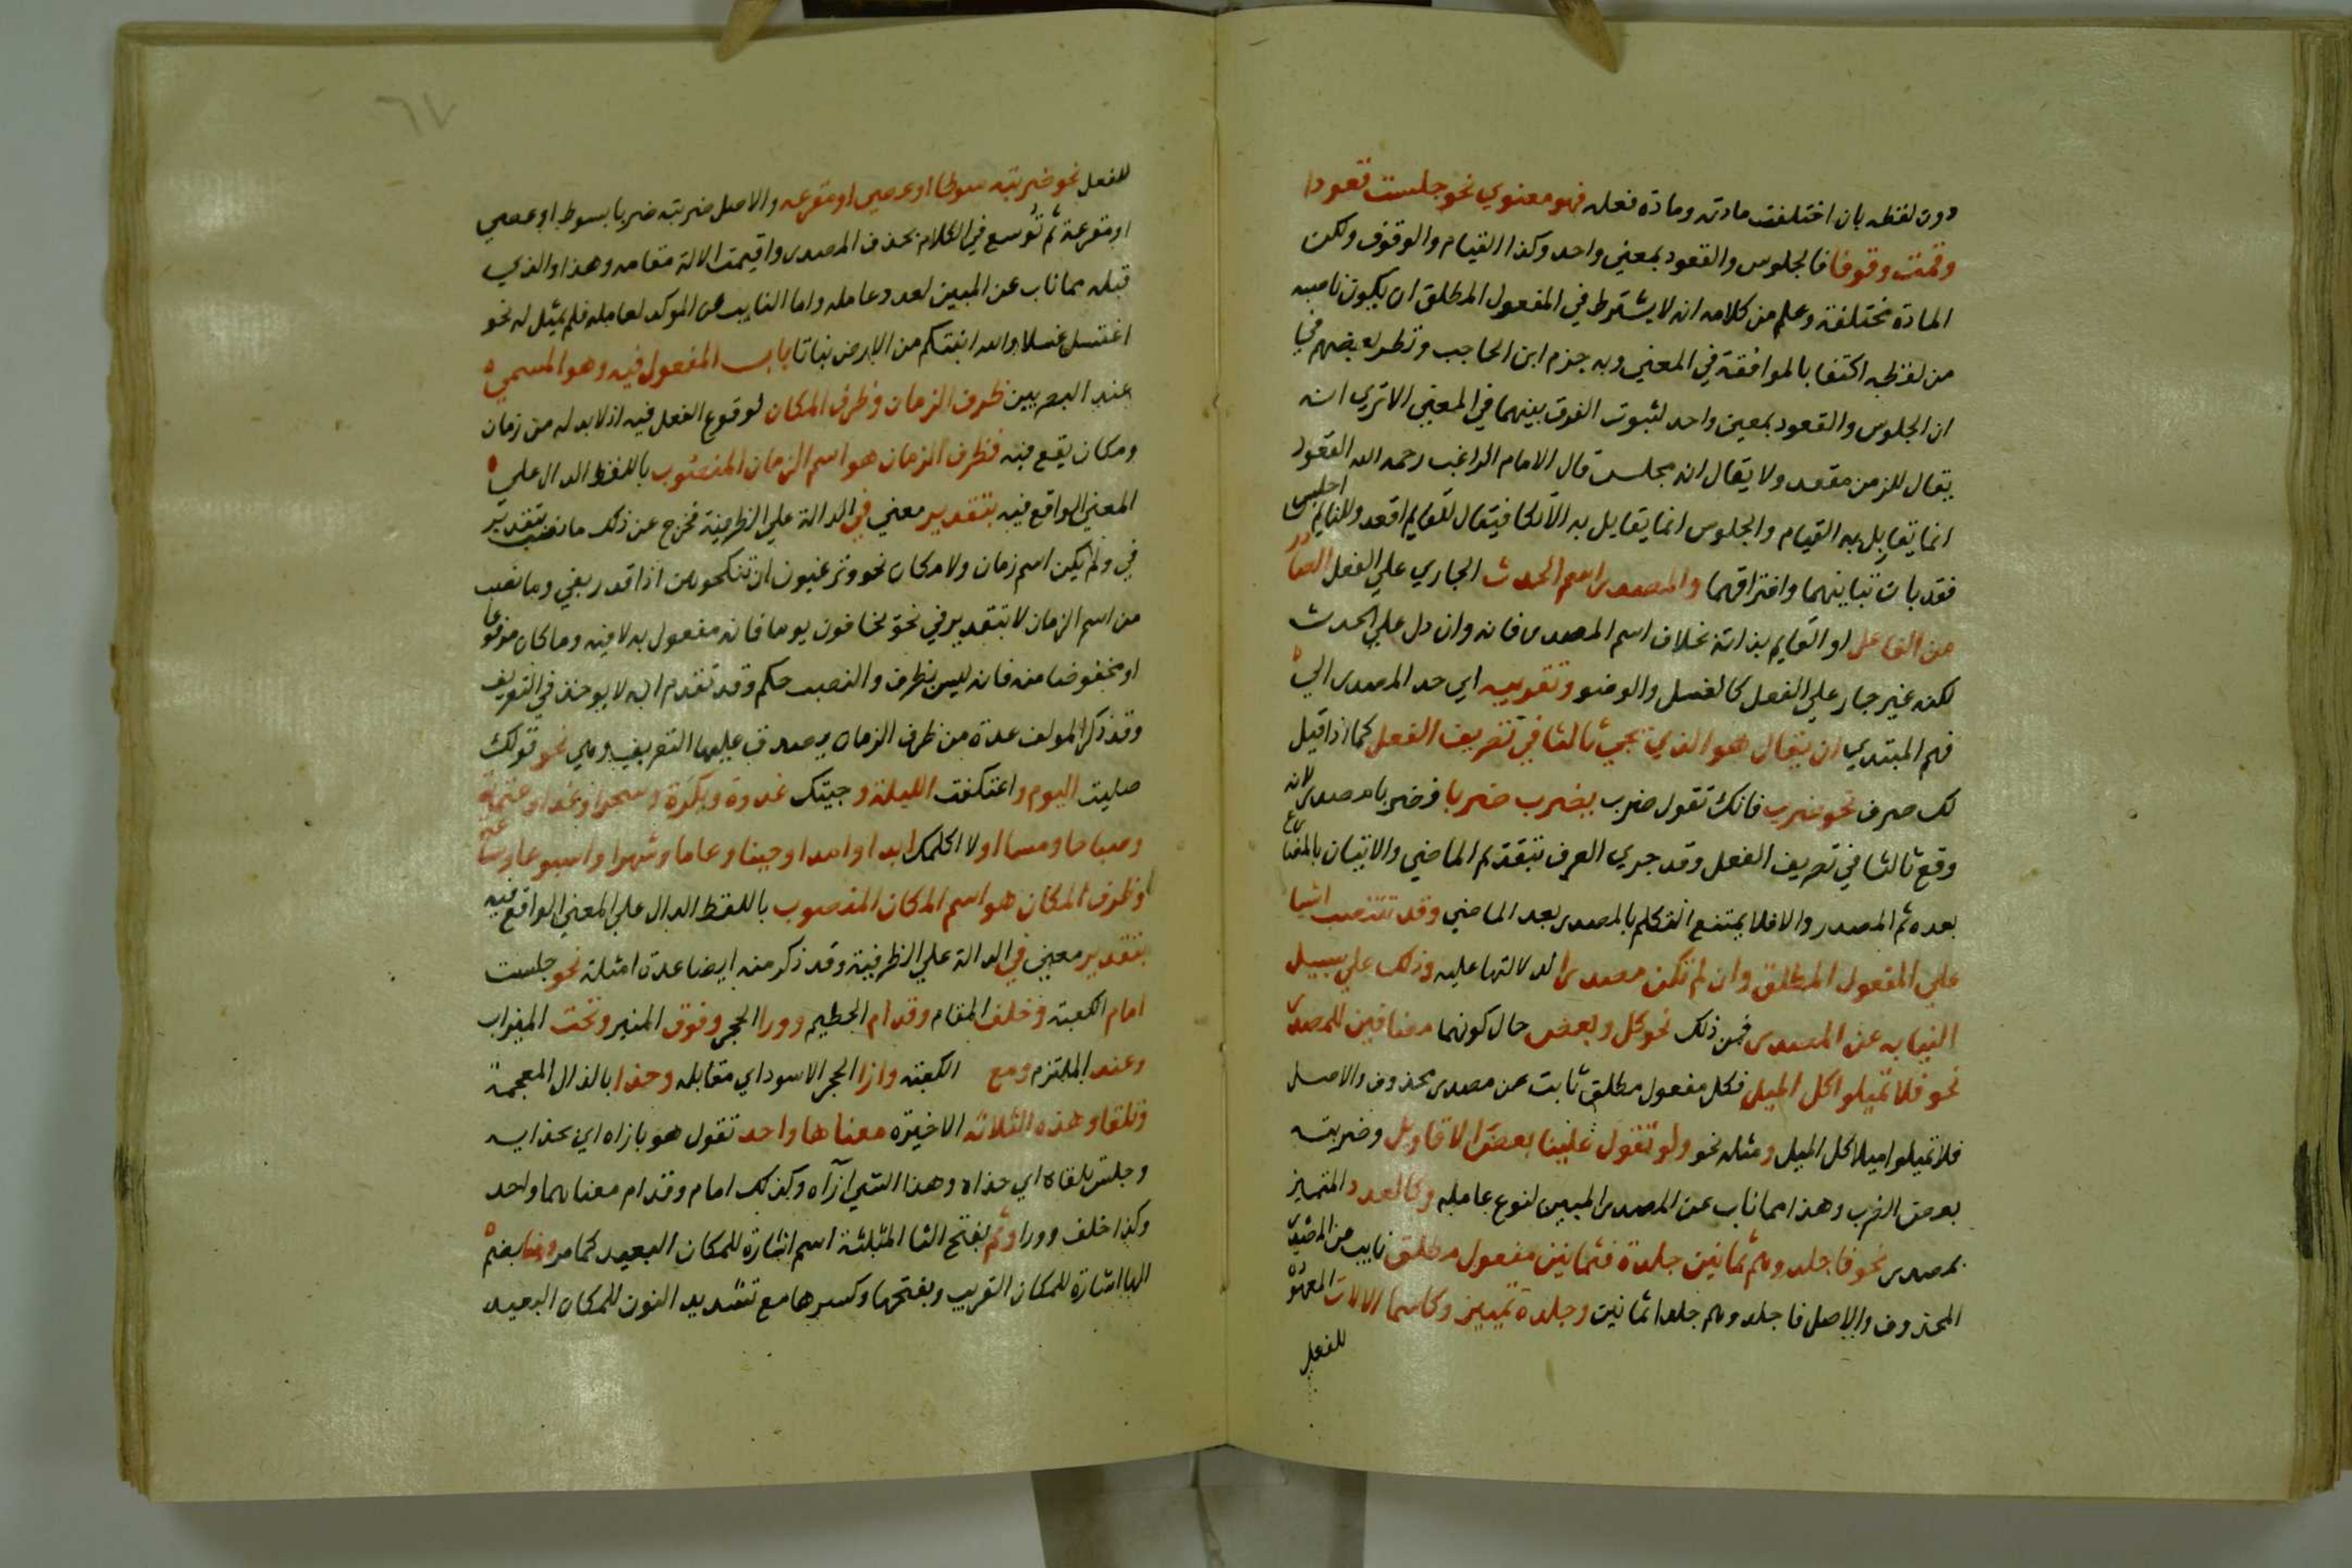 دون لفظه بان اختلفت مادته ومادة فعله فهو معنوي نحو جلست قعودا
وقمت وقوفا فالجلوس والقعود بمعني واحد وكذا القيام والوقوف ولكن
المادة مختلفة وعلم من كلامه انه لا يشترط في المفعول المطلق ان يكون ناصبه
من لفظه اكتفا بالموافقة في المعني وبه جزم ابن الحاجب ونظر بعضهم في
ان الجلوس والقعود بمعين واحد لثبوت الفرق بينهما في المعني الا تري انه
يقال للزمن مقعد ولا يقال انه مجلس قال الامام الراغب رحمه الله القعود
انما يقابل به القيام والجلوس انما يقابل به الاتكا فيقال للقايم اقعد وللنايم اجلس
فقد بان تباينهما وافتراقهما والمصدر اسم الحدث الجاري علي الفعل الصادر
من الفاعل او القايم بذاته بخلاف اسم المصدر فانه وان دل علي الحدث
لكنه غير جار علي الفعل كالغسل والوضو وتقريبه اي حد المصدر الي
فهم المبتدي ان يقال هو الذي يجي ثالثا في تصريف الفعل كما اذا قيل
لك صرف نحو ضرب فانك تقول ضرب يضرب ضربا فضربا مصدر لانه
وقع ثالثا في تصريف الفعل وقد جري العرف بتقديم الماضي والاتيان بالمضارع
بعده ثم المصدر والا فلا يمتنع التكلم بالمصدر بعد الماضي وقد تنتصب اشيا
علي المفعول المطلق وان لم تكن مصدرا لدلالتها عليه وذلك علي سبيل
النيابه عن المصدر فمن ذلك نحو كل وبعض حال كونهما مضافين للمصدر
نحو فلا تميلوا كل الميل فكل مفعول مطلق ثابت عن مصدر محذوف والاصل
فلا تميلوا ميلا كل الميل ومثله نحو ولو تقول علينا بعض الاقاويل وضربته
بعض الضرب وهذا مما ناب عن المصدر المبين لنوع عامله وكالعدد المتميز
بمصدر نحو فاجلدوهم ثمانين جلدة فثمانين مفعول مطلق نايب عن المصدر
المحذوف والاصل فاجلدوهم جلدا ثمانين وجلدة تمييز وكاسما الالات المعهودة
للفعل
٦٧
للفعل نحو ضربته سوطا او عصي او مقرعه والاصل ضربته ضربا بسوط او عصي
او مقرعة ثم توسع في الكلام بحذف المصدر واقيمت الالة مقامه وهذا والذي
قبله مما ناب عن المبين لعدد عامله واما النايب عن الموكد لعامله فلم يمثل له نحو
اغتسل غسلا والله انبتكم من الارض نباتا باب المفعول فيه وهو المسمي
عند البصريين ظرف الزمان وظرف المكان لوقوع الفعل فيه اذ لا بد له من زمان
ومكان يقع فيه فظرف الزمان هو اسم الزمان المنصوب باللفظ الدال علي
المعني الواقع فيه بتقدير معني في الدالة علي الظرفية فخرج عن ذلك ما نصب بتقدير
في ولم يكن اسم زمان ولا مكان نحو وترغبون ان تنكحوهن اذا قدر بفي وما نصب
من اسم الزمان لا بتقدير في نحو يخافون يوما فانه مفعول به لا فيه وما كان مرفوعا
او مخفوضا منه فانه ليس بظرف والنصب حكم وقد تقدم انه لا يوخذ في التعريف
وقد ذكر المولف عدة من ظرف الزمان يصدق عليها التعريف وهي نحو قولك
صليت اليوم واعتكفت الليلة وجيتك غدوة وبكرة وسحرا وغدا وعتمة
وصباحا ومساا ولا اكلمك ابدا وامدا وحينا وعاما وشهرا واسبوعا وساعة
وظرف المكان هو اسم المكان المنصوب باللفظ الدال علي المعني الواقع فيه
بتقدير معني في الدالة علي الظرفية وقد ذكر منه ايضا عدة امثلة نحو جلست
امام الكعبة وخلف المقام وقدام الحطيم وورا الحجر وفوق المنبر وتحت الميزاب
وعند الملتزم ومع الكعبة وازا الحجر الاسود اي مقابله وحذا بالذال المعجمة
وتلقا وهذه الثلاثة الاخيرة معناها واحد تقول هو بازاه اي بحذايه
وجلس تلقاه اي حذاه وهذا الشي ازآه وكذلك امام وقدام معناهما واحد
وكذا خلف وورا وثم بفتح الثا المثلثة اسم اشارة للمكان البعيد كما مر وهنا بضم
الها اشارة للمكان القريب وبفتحها وكسرها مع تشديد النون للمكان البعيد